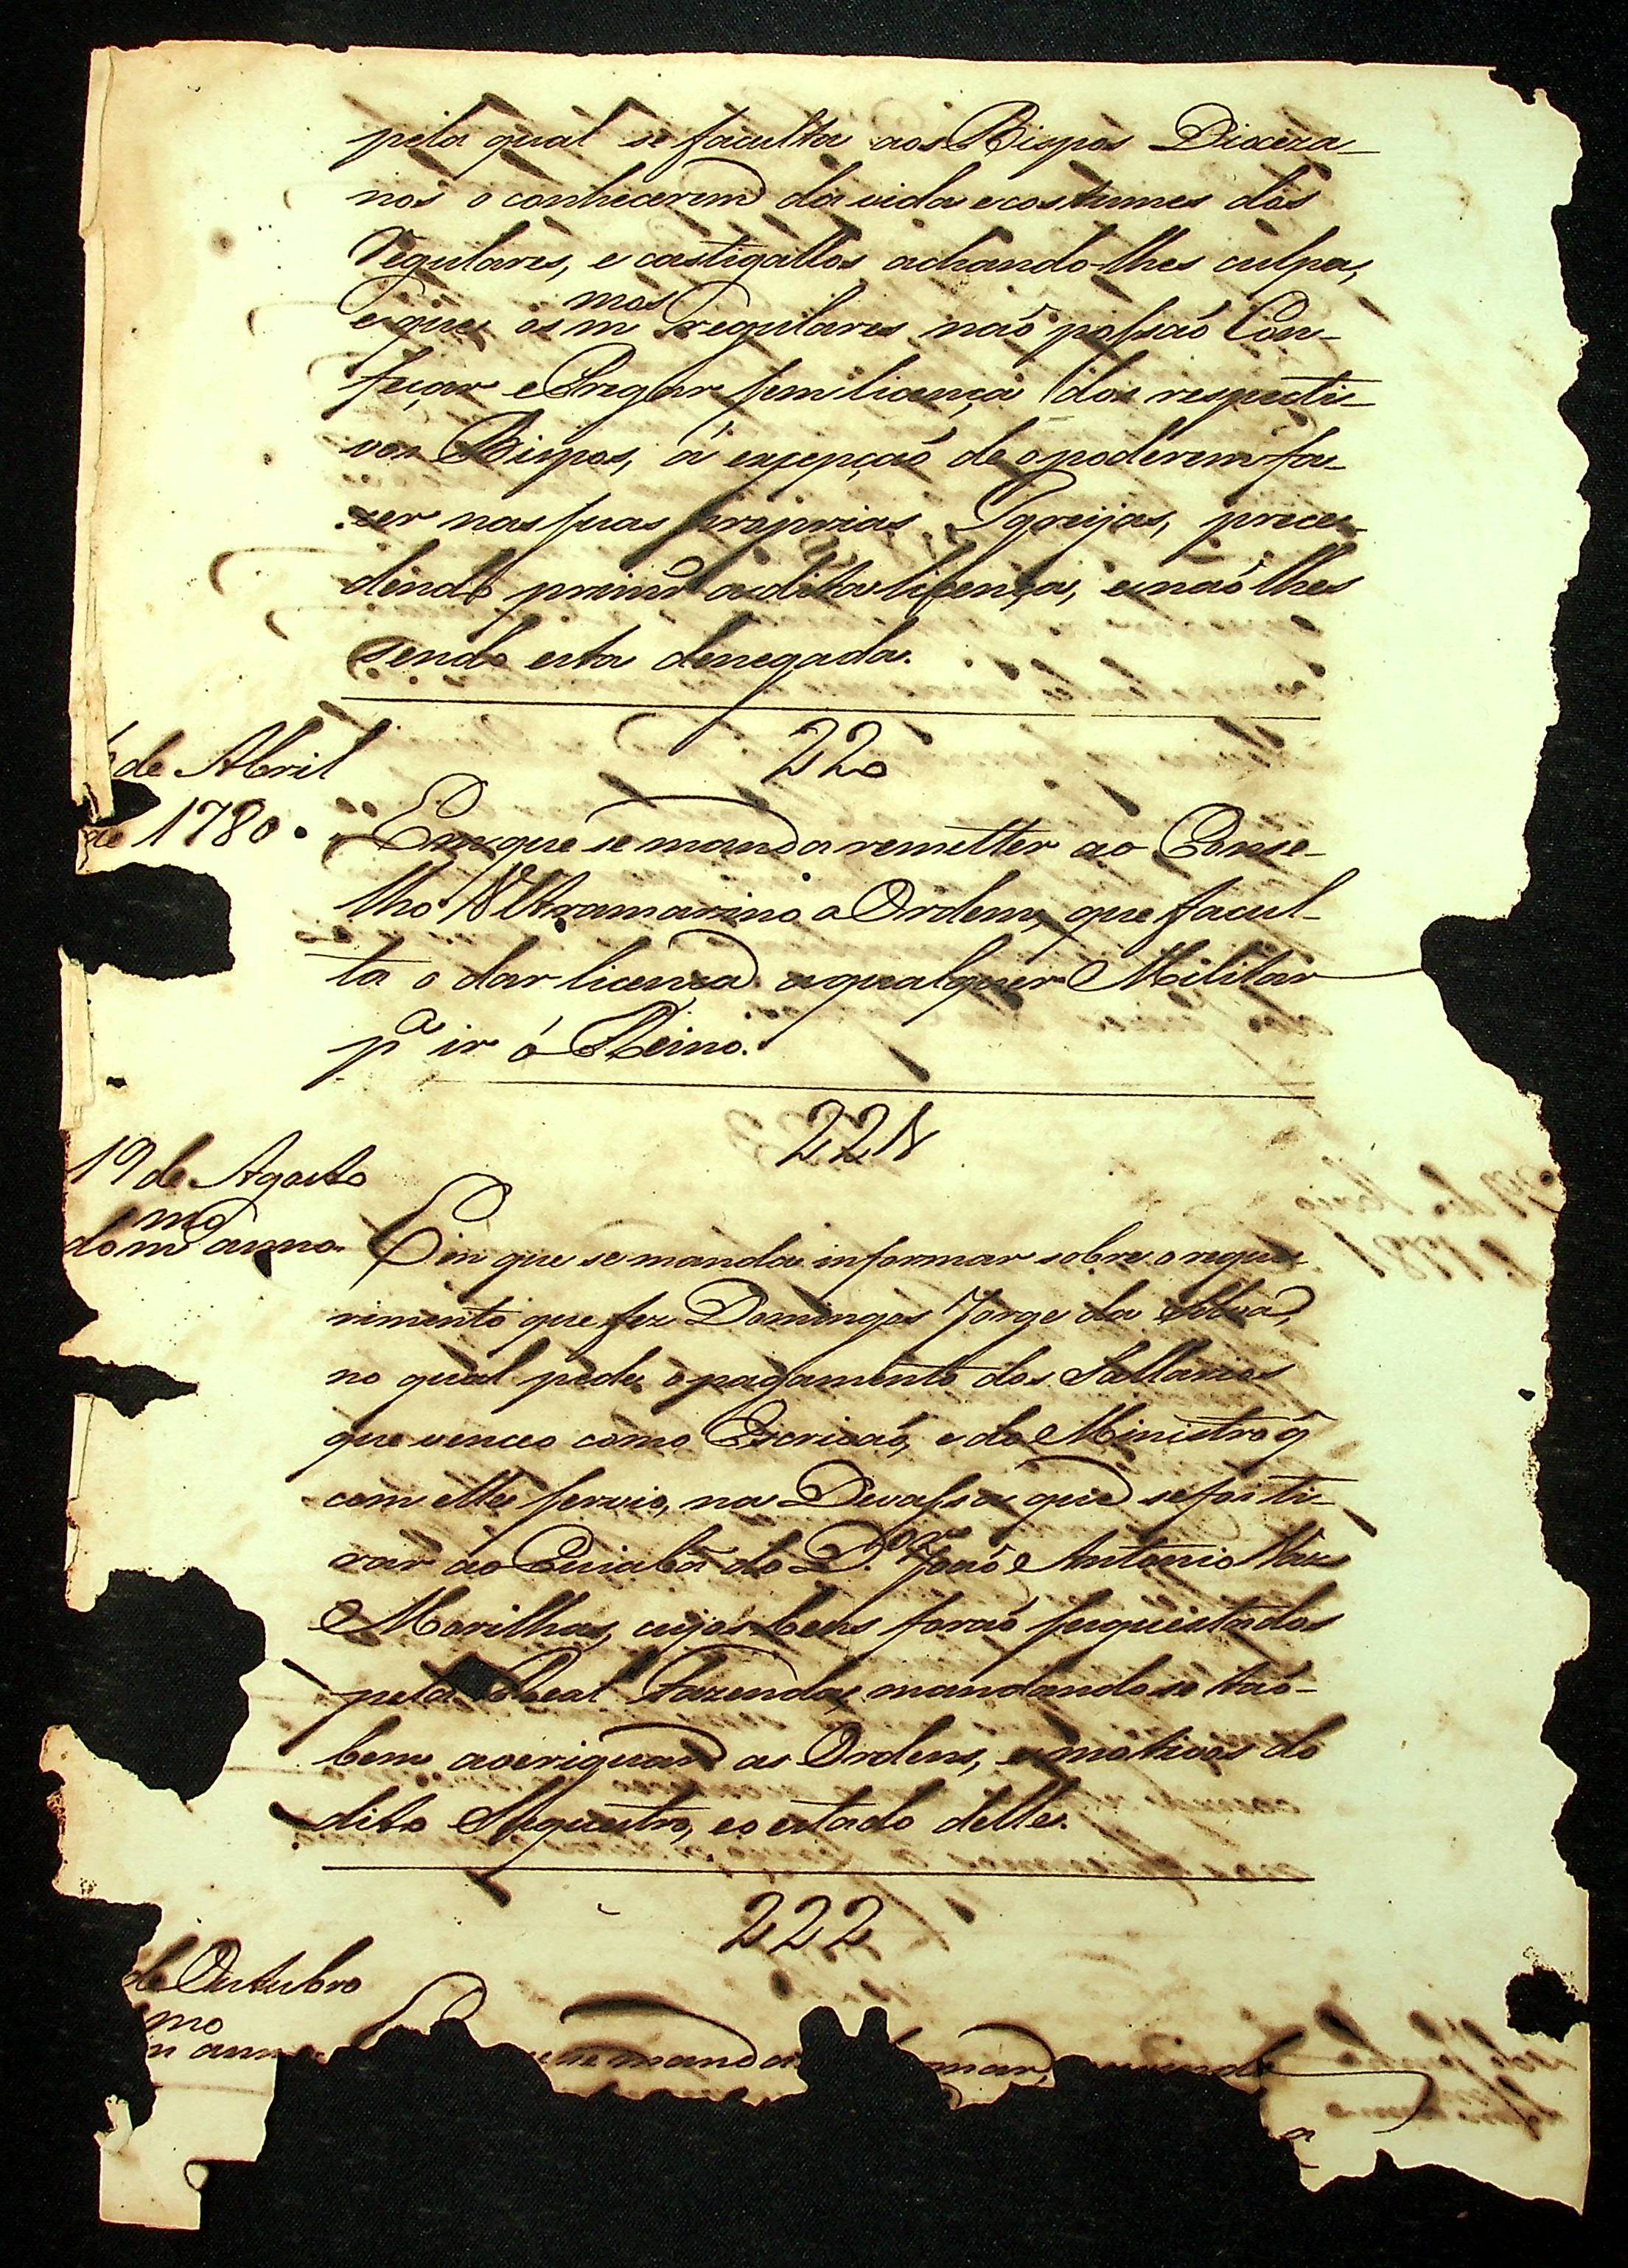 pela qual se faculta aos Bispos Dioceza-
nos o conhecerem da vida e costumes dos
Regulares, e castigallos achando-lhes culpa,
e que os m.mos regulares naõ possaõ Con-
feçar e Pregar sem licença dos respecti-
vos Bispos, á excepçaõ de o poderem fa-
zer nas suas proprias Igreijas, prece-
dendo primr.o a dita licença, e naõ lhes
sendo esta denegada.
220
de Abril
de 1780.
Em que se manda remetter ao Conse-
lho Ultramarino a Ordem, que facul-
ta o dar licença a qualquer Militar
p.a ir ó Reino.
221
19 de Agosto
do m.mo anno.
Em que se manda informar sobre o reque-
rimento que fez Domingos Jorge da Silva,
no qual pede o pagamento dos Sallarios
que venceo como Escrivaõ, e do Ministro q̃
com elle servio, na Devassa que se foi ti-
rar ao Cuiabá do D.or Joaõ Antonio Vaz
Morilhas, cujos bens foraõ sequestados
pela Real Fazenda, mandando se taõ-
bem averiguar as Ordens, e motivos do
dito Sequestro, e o estado delle.
222
de Outubro
mo
m ann
se manda mar,
a